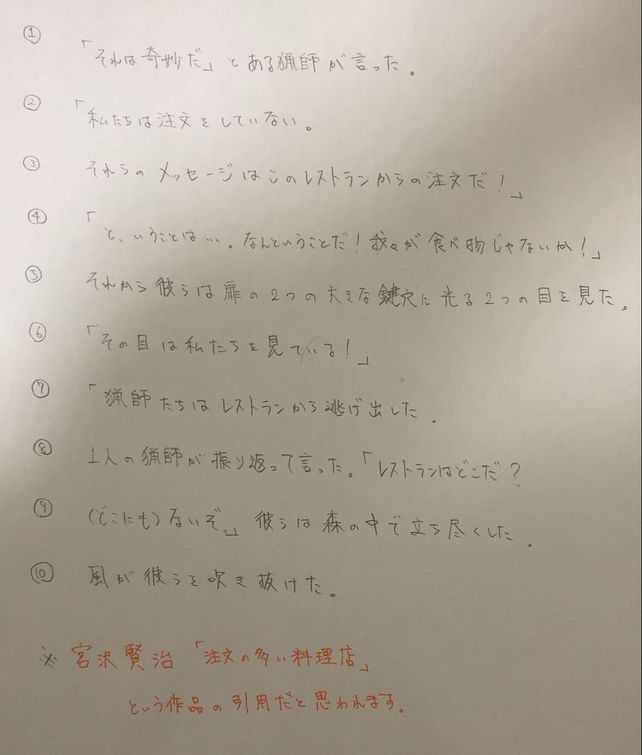 ① 「それは奇妙だ」とある猟師が言った。
② 「私たちは注文をしていない。
③ それらのメッセージはこのレストランからの注文だ！」
④ 「と、いうことは…。なんということだ！我々が食べ物じゃないか！」
⑤ それから彼らは扉の2つの大きな鍵穴に光る2つの目を見た。
⑥ 「その目は私たちを見ている！」
⑦ 「猟師たちはレストランから逃げ出した。
⑧ 1人の猟師が振り返って言った。「レストランはどこだ？
⑨ （どこにも）ないぞ。」彼らは森の中で立ち尽くした。
⑩ 風が彼らを吹き抜けた。
※ 宮沢賢治「注文の多い料理店」
という作品の引用だと思われます。